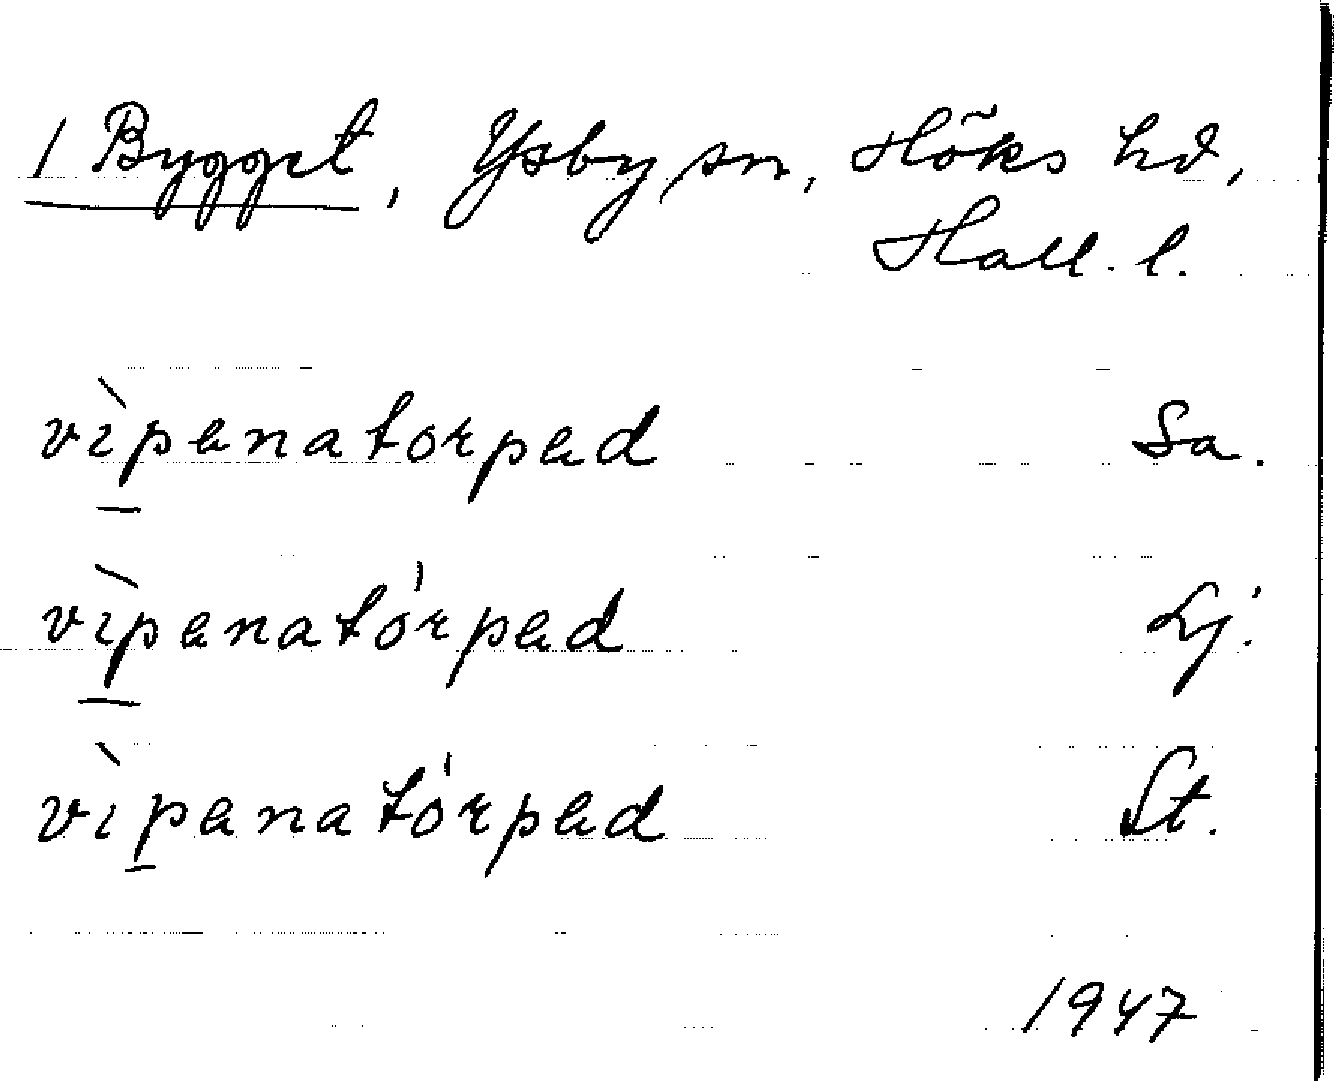 1 Bygget, Ysby sn, Höks hd,
Hall. l.
vìpanatorpad Sa.
vìpanatórpad Lj.
vìpanatórpad St.
1947